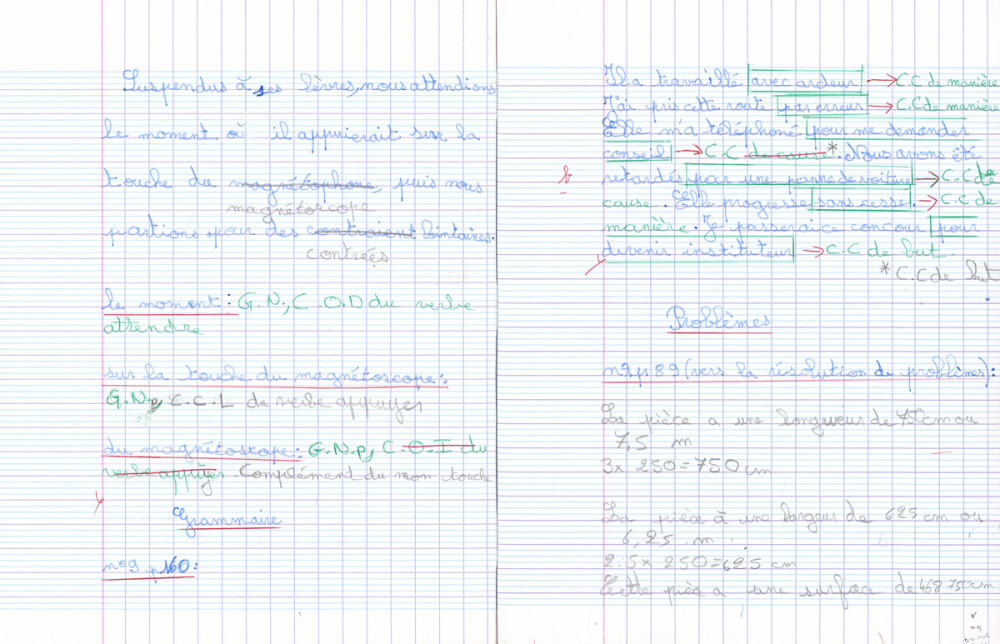 Suspendus à ses lèvres, nous attendions
le moment où il appuierait sur la
touche du magnétophone, puis nous
magnétoscope
partions pour des contraient lointaines.
contrées
le moment : G.N, C.O.D du verbe
attendre
sur la touche du magnétoscope :
G.N.p, C.C.L du verbe appuyer
du magnétoskope : G.N.p, C.O.I du
verbe appuyer. Complément du nom touche
Grammaire
n°9 p160 :
Il a travaillé avec ardeur → C.C de manière
J'ai pris cette route par erreur → C.C de manière
Elle m'a téléphoné pour me demander
conseil → C.C de cause*. Nous avons été
retardés par une panne de voiture → C.C de
cause. Elle progresse sans cesse. → C.C de
manière. Je passerai ce concour pour
devenir instituteur → C.C de but.
* C.C de but
b
Problèmes
n°2 p89 (vers la résolution de problèmes) :
La pièce a une longueur de 750cm ou
7,5 m
3x 250=750 cm
La pièce à une largeur de 625 cm ou
6,25 m.
2.5x 250=625 cm
Cette pièce a une surface de 468 750cm